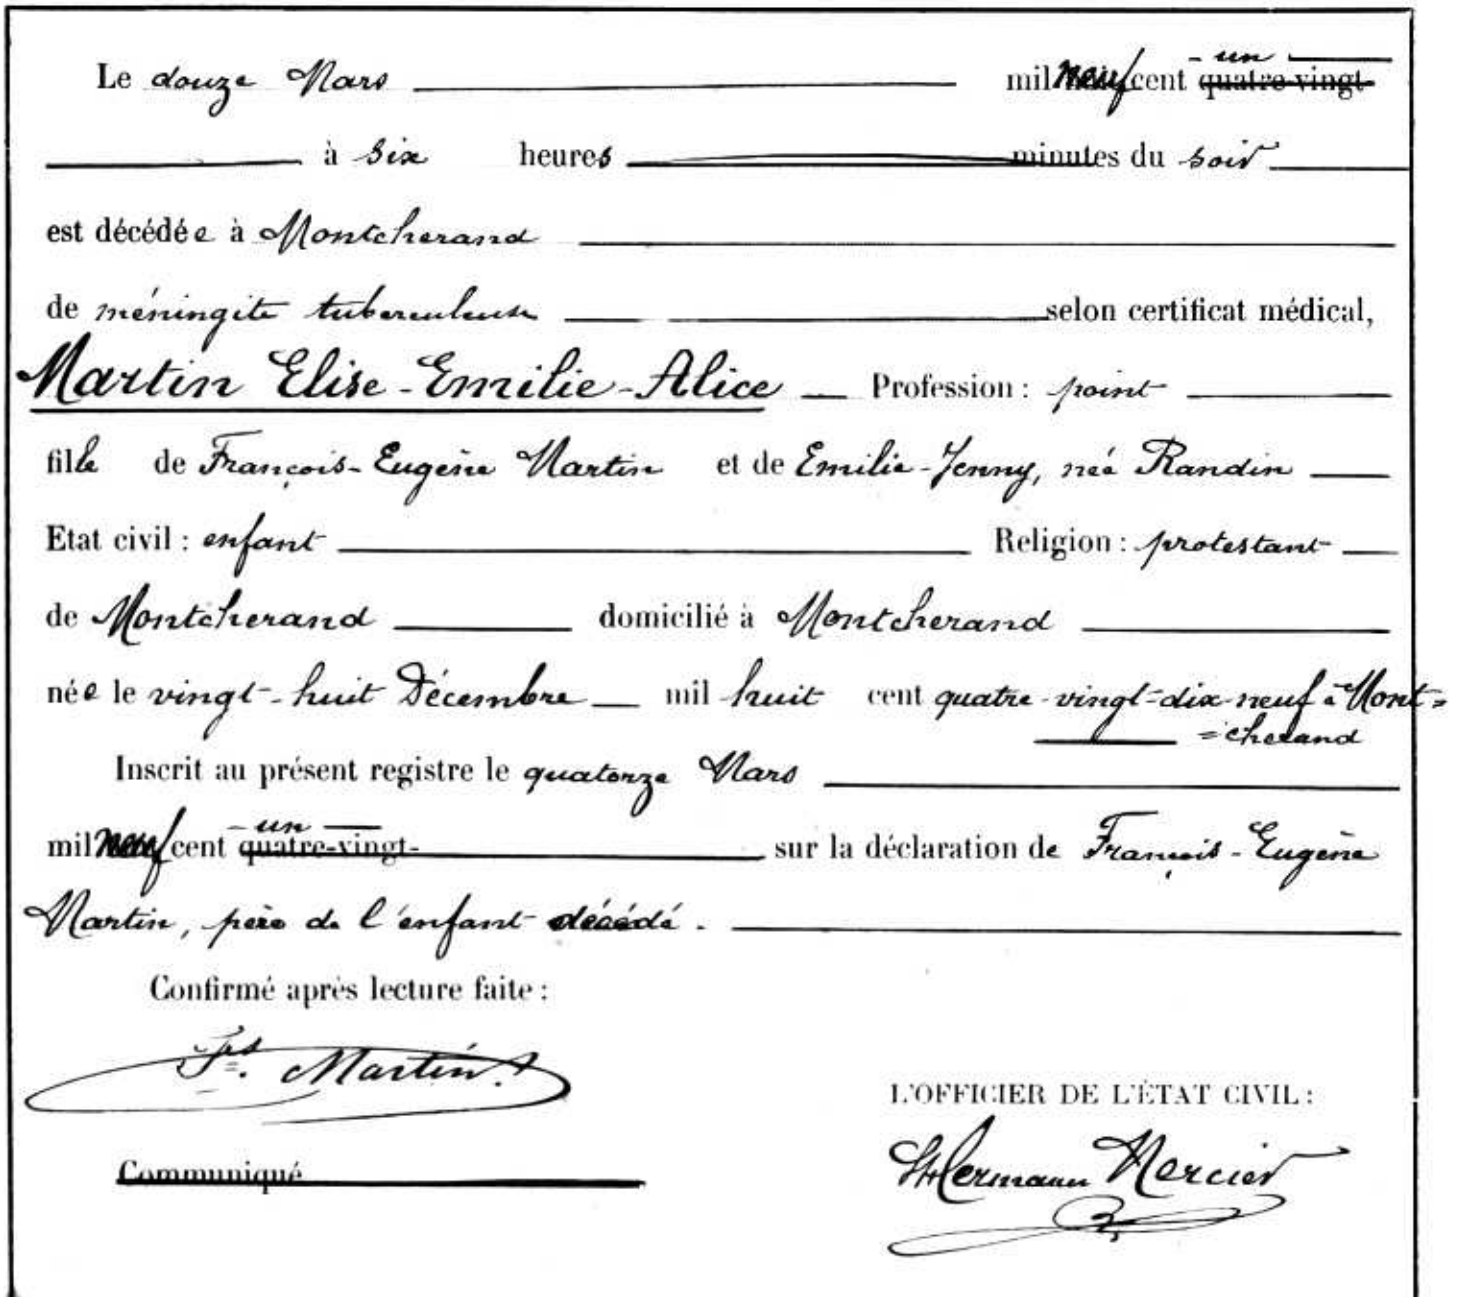 Le douze Mars mil neuf cent un quatre-vingt-
à six heures minutes du soir
est décédée à Montcherand
de méningite tuberculeuse selon certificat médical,
Martin Elise-Emilie-Alice Profession : point
fille de François-Eugène Martin et de Emilie-Jenny, née Randin
Etat civil : enfant Religion : protestant
de Montcherand domicilié à Montcherand
née le vingt-huit Décembre mil huit cent quatre-vingt-dix-neuf à Mont=
=cherand
Inscrit au présent registre le quatorze Mars
mil neuf cent un quatre-vingt- sur la déclaration de François-Eugène
Martin, père de l'enfant décédé.
Confirmé après lecture faite :
Fs. Martin.
L'OFFICIER DE L'ÉTAT CIVIL :
Communiqué
Hermann Mercier